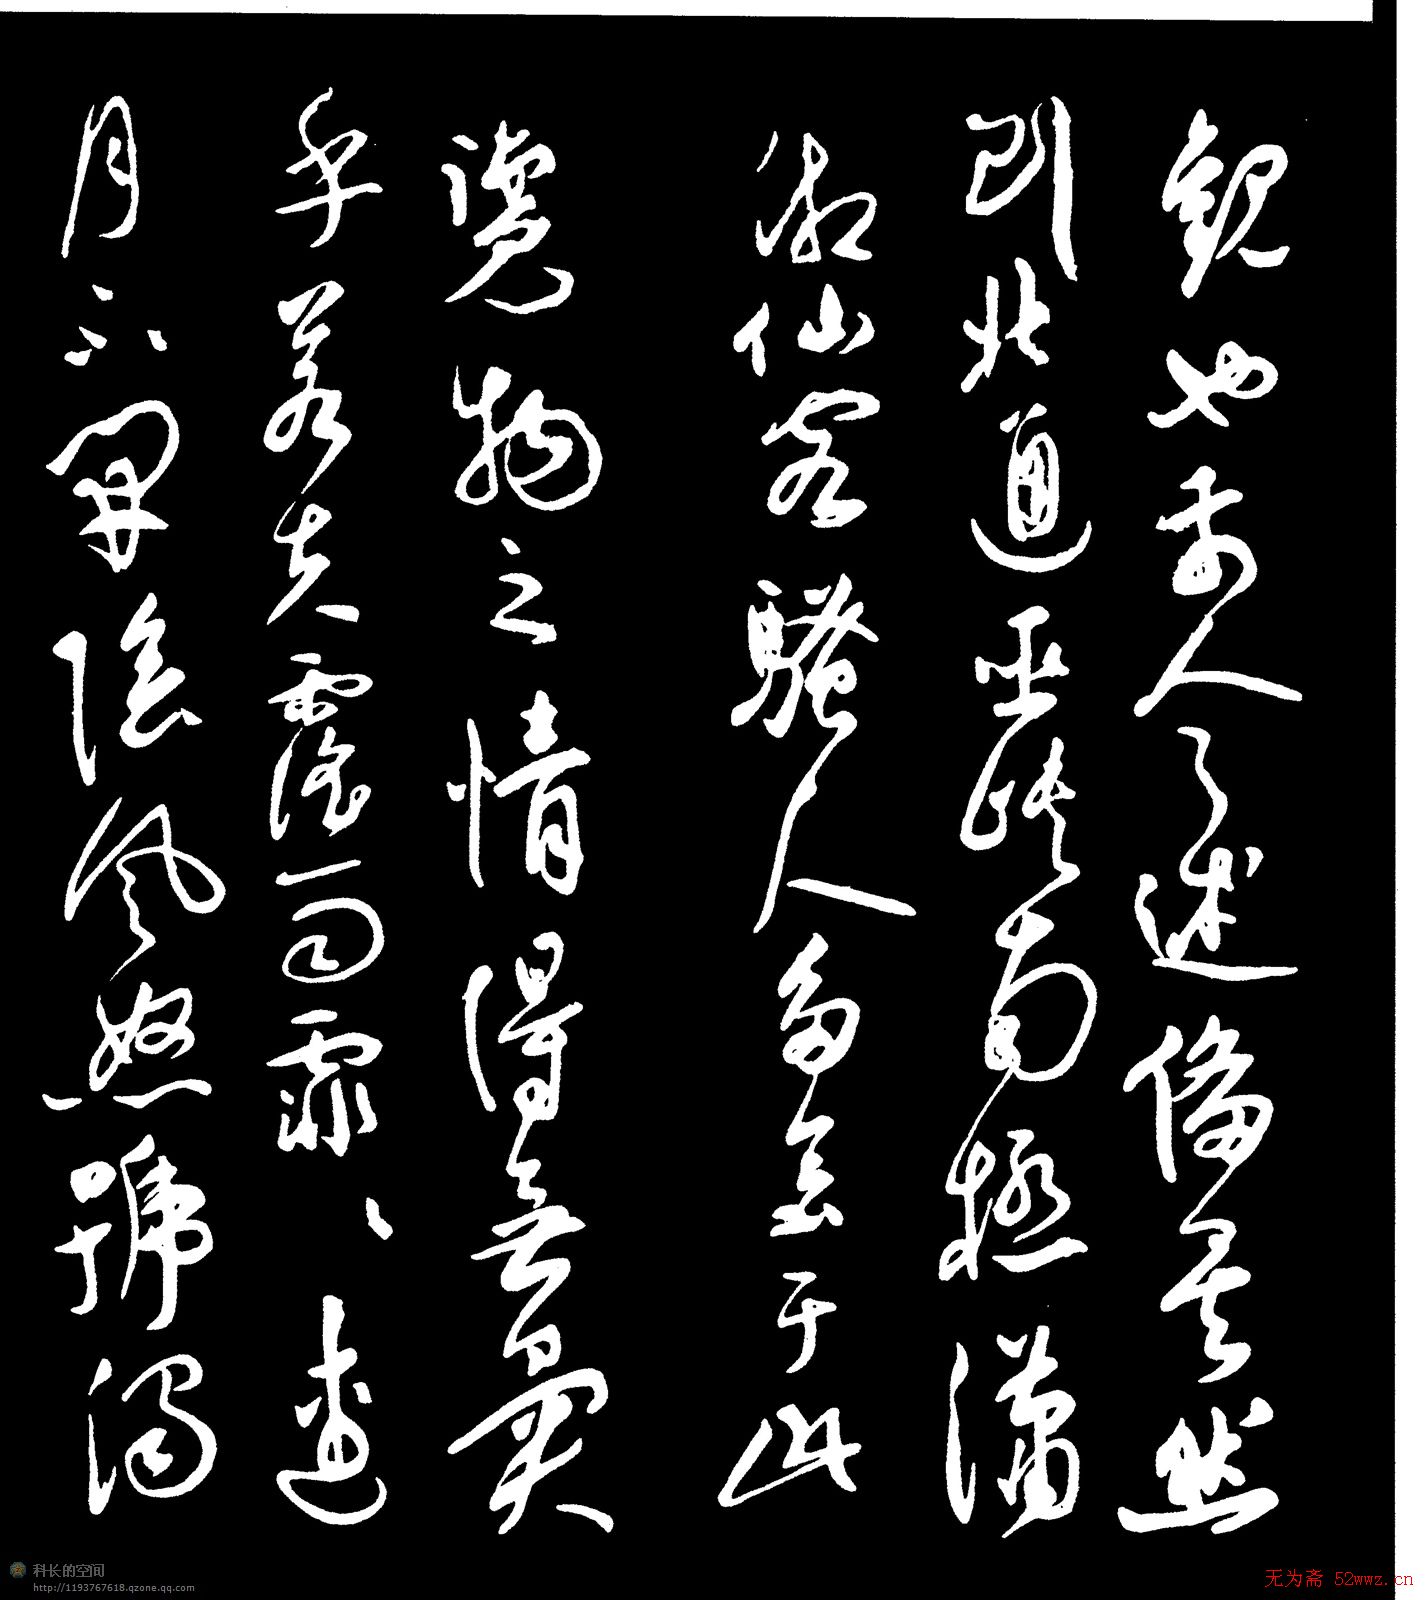 觀也前人之述俻矣然
則北通巫峽南極瀟
湘仙客騷人多會于此
覽物之情得無異
乎若夫霪雨霏〻連
月不開陰風怒號濁
科长的空间
http://1193767618.qzone.qq.com
无为斋 52wwz.cn